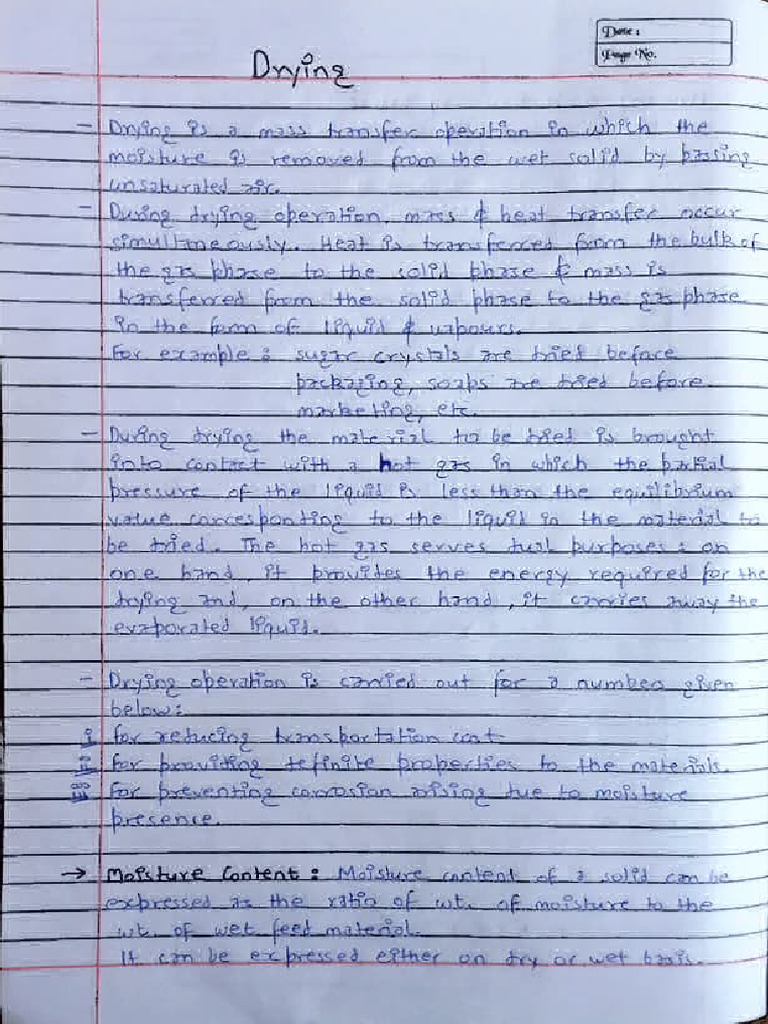 Date :
Page No.
Drying
- Drying is a mass transfer operation in which the
moisture is removed from the wet solid by passing
unsaturated air.
- During drying operation, mass & heat transfer occur
simultneously. Heat is transferred from the bulk of
the gas phase to the solid phase & mass is
transferred from the solid phase to the gas phase
in the form of liquid & vapours.
for example : sugar crystals are dried before
packaging, soaps are dried before
marketing, etc.
- During drying the material to be dried is brought
into contact with a hot gas in which the partial
pressure of the liquid is less than the equilibrium
value corresponding to the liquid in the material to
be dried. The hot gas serves dual purposes : on
one hand, it provides the energy required for the
drying and, on the other hand, it carries away the
evaporated liquid.
- Drying operation is carried out for a number given
below :
i for reducing transportation cost
ii for providing definite properties to the materials.
iii for preventing corrosion arising due to moisture
presence.
→ Moisture Content : Moisture content of a solid can be
expressed as the ratio of wt. of moisture to the
wt. of wet feed material.
It can be expressed either on dry or wet basis.